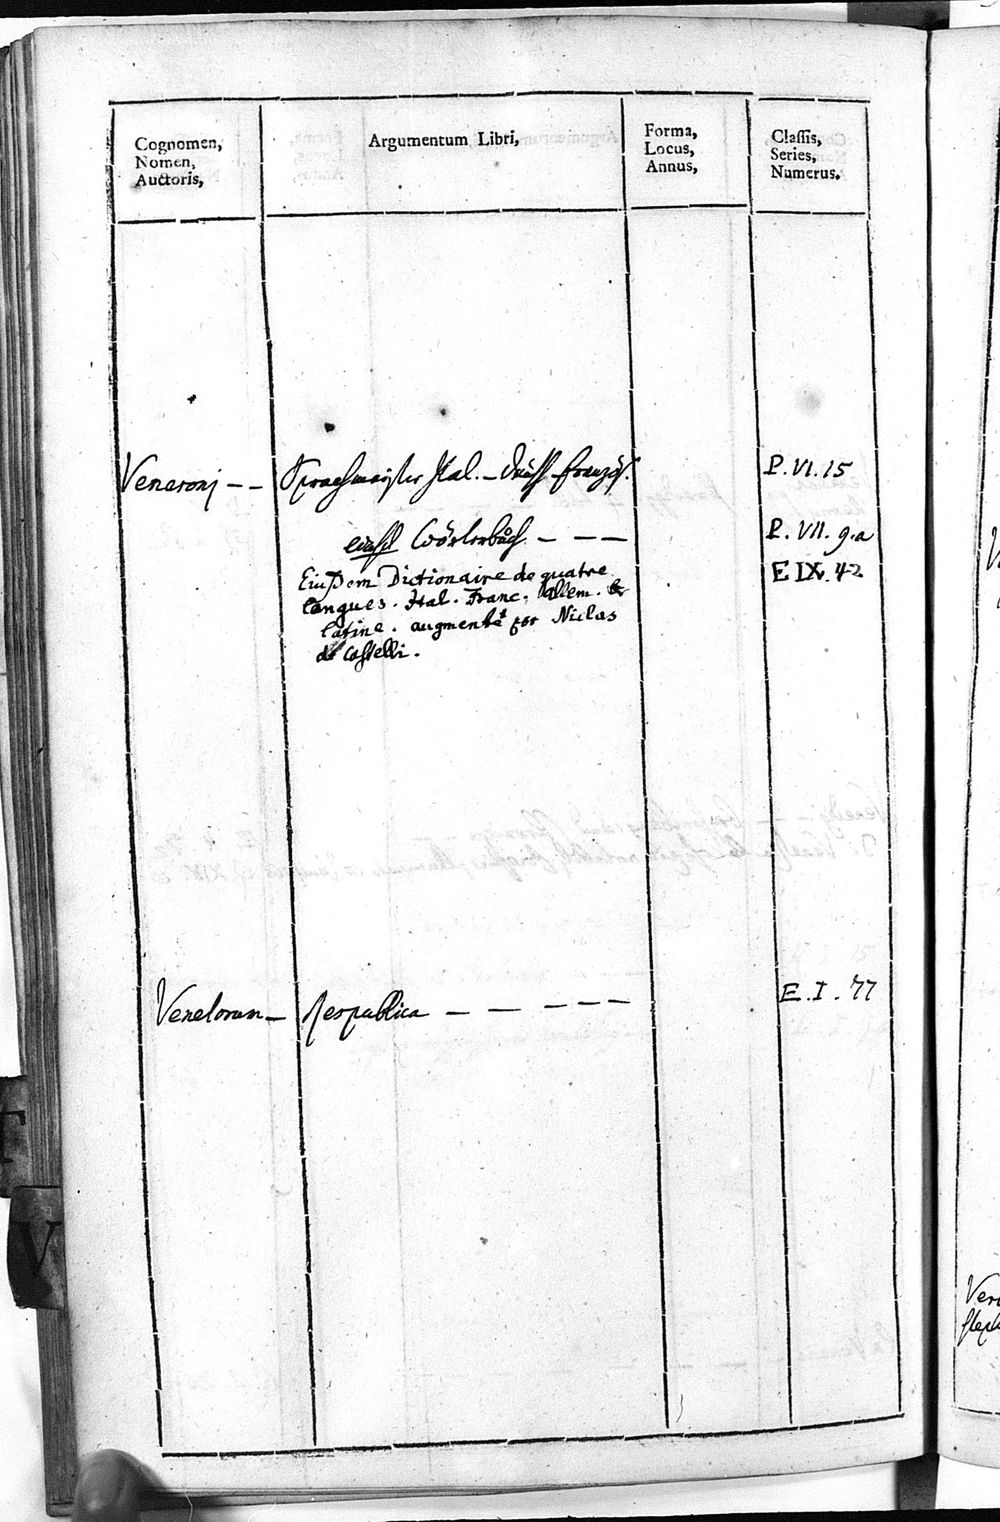 Cognomen,
Nomen,
Auctoris,
Argumentum Libri,
Forma,
Locus,
Annus,
Classis,
Series,
Numerus.
Veneronj – – Sprachmeister Ital. – Französ. P. VI. 15
Wörterbuch – – – P. VII. 9.a
Eiusdem Dictionaire de quatre E IX. 42
langues. Ital. Franc. Allem. &
latine. augmenté par Niclas
de Castelli.
Venetorum – Respublica – – – – – E. I. 77
V
Ver